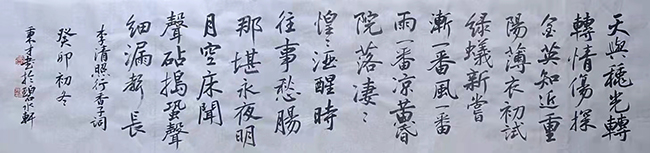 天與穐光轉
轉情傷探
金英知近重
陽薄衣初試
綠蟻新嘗
漸一番風一番
雨一番涼黃昏
院落凄〻
惶〻酒醒時
往事愁腸
那堪永夜明
月空床聞
聲砧搗蛩聲
細漏聲長
李清照行香子詞
癸卯初冬
秉才書於碧水軒